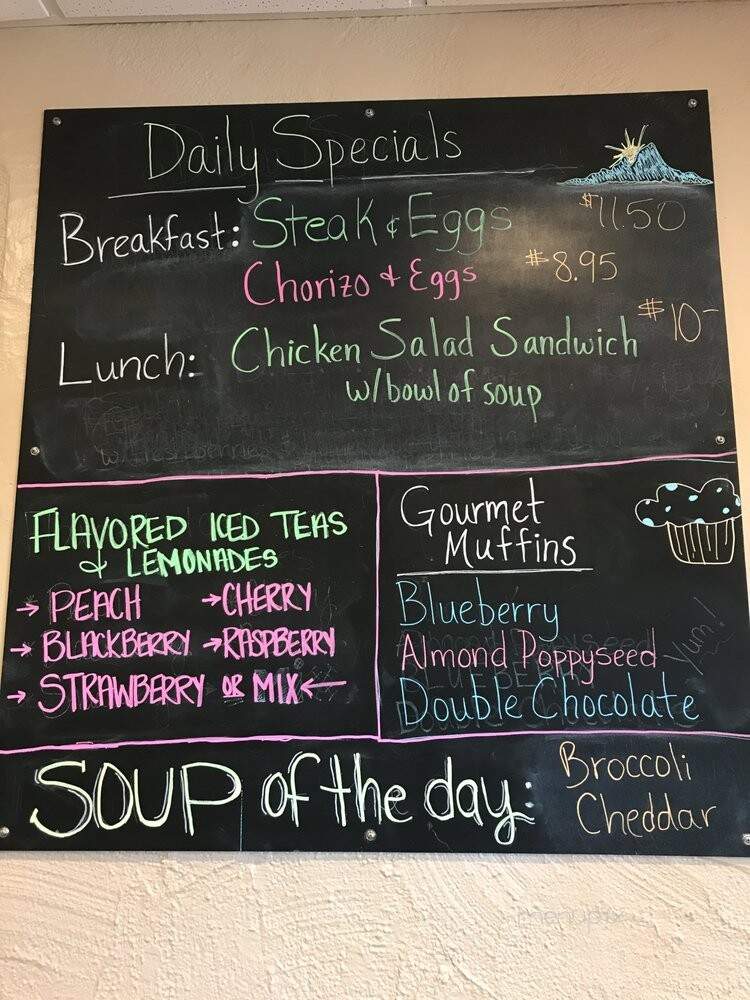 Daily Specials
Breakfast: Steak & Eggs $11.50
Chorizo & Eggs $8.95
Lunch: Chicken Salad Sandwich $10-
w/bowl of soup
FLAVORED ICED TEAS
& LEMONADES
→ PEACH → CHERRY
→ BLACKBERRY → RASPBERRY
→ STRAWBERRY OR MIX ←
Gourmet
Muffins
Blueberry
Almond Poppyseed
Yum!
Double Chocolate
SOUP of the day:
Broccoli
Cheddar